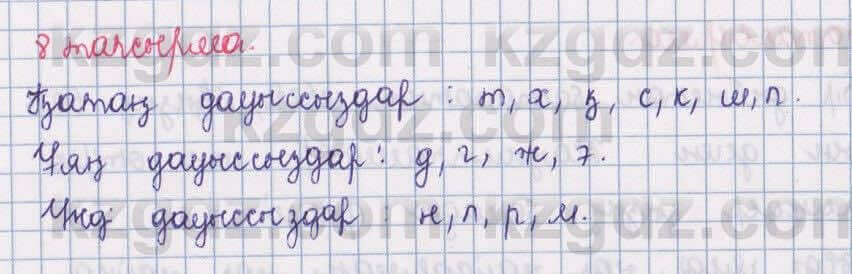 8 тапсырма.
Қатаң дауыссыздар : т, х, қ, с, к, ш, п.
Ұяң дауыссыздар : д, г, ж, з.
Үнді дауыссыздар : н, л, р, м.
kzgdz.com